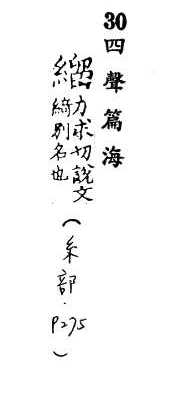 30四聲篇海
力求切說文
綺別名也
(糸部．P275)